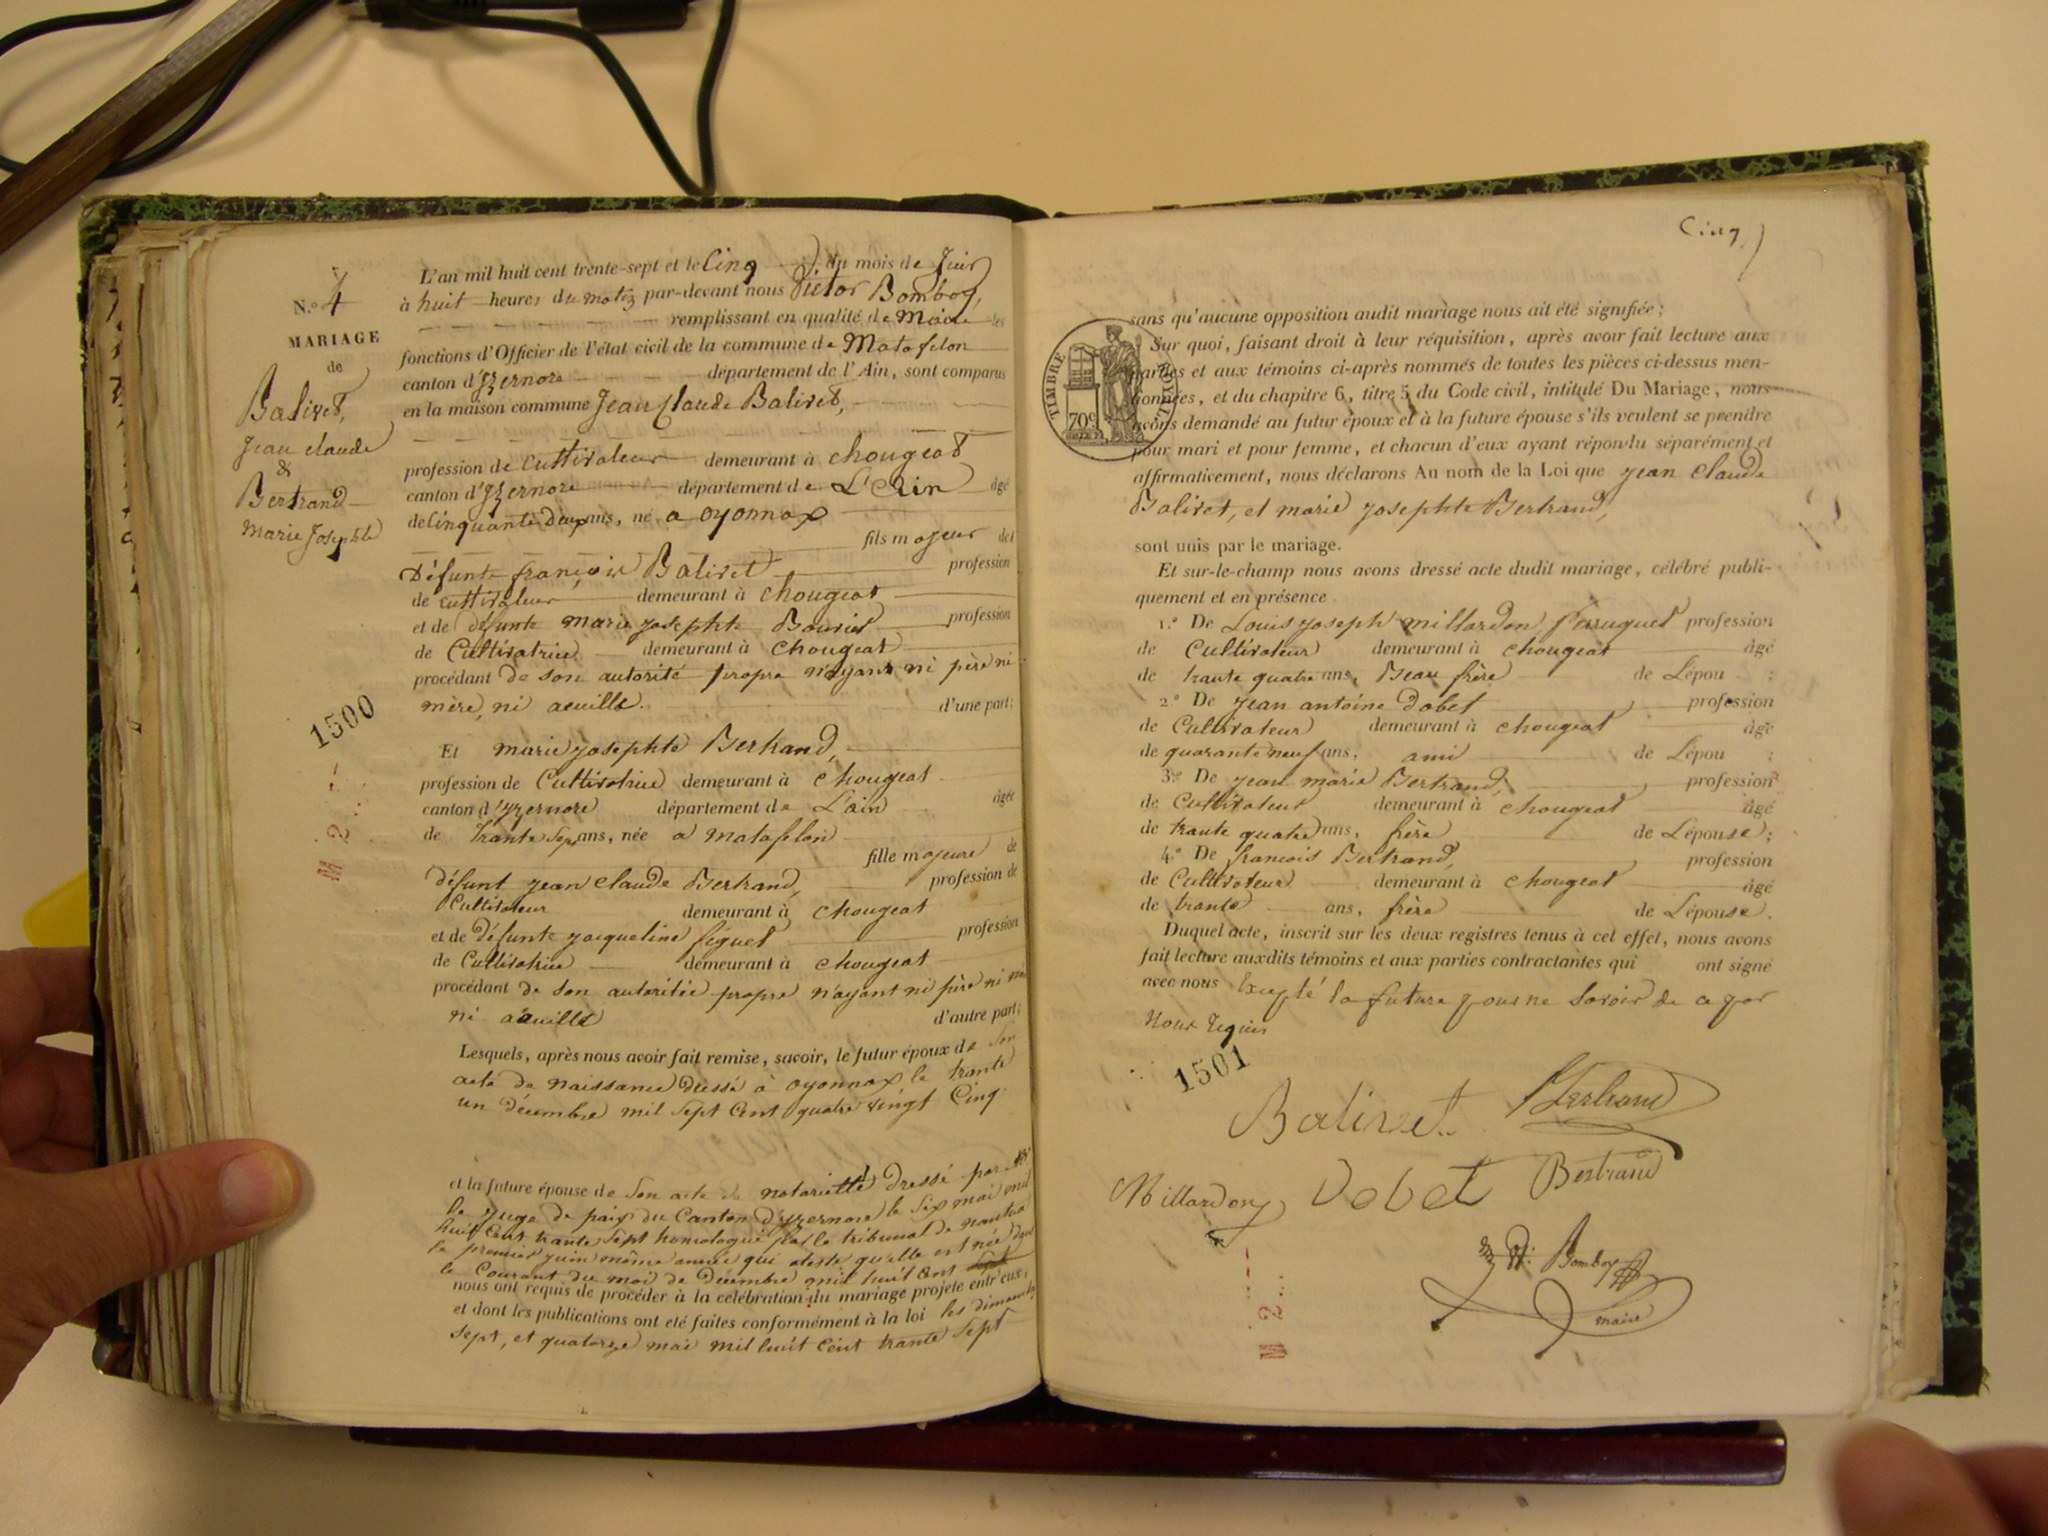 N.º 4
MARIAGE
de
Balivet,
Jean claude
&
Bertrand
Marie Josephte
1500
M 2
L'an mil huit cent trente-sept et le Cinq du mois de Juin
à huit heures du matin par-devant nous Victor Bomboy,
remplissant en qualité de Maire les
fonctions d'Officier de l'état civil de la commune de Matafelon
canton d'yzernore département de l'Ain, sont comparus
en la maison commune Jean Claude Balivet,
profession de Cultivateur demeurant à chougeat
canton d'yzernore département de L'Ain âgé
de Cinquante deux ans, né a oyonnax
fils majeur de
Défunt françois Balivet profession
de cultivateur demeurant à chougeat
et de défunte marie josephte Bouvier profession
de Cultivatrice demeurant à chougeat
procédant de son autorité propre n'ayant ni père ni
mère, ni aeuille. d'une part;
Et marie josephte Bertrand,
profession de Cultivatrice demeurant à chougeat
canton d'yzernore département de L'ain âgée
de trante sept ans, née a matafelon
fille majeure de
défunt jean claude Bertrand, profession de
Cultivateur demeurant à chougeat
et de défunte jacqueline figuet profession
de Cultivatrice demeurant à chougeat
procédant de son autoritée propre n'ayant ni père ni
ni aëuille d'autre part;
Lesquels, après nous avoir fait remise, savoir, le futur époux de son
acte de naissance dressé à oyonnax le trante
un décembre mil sept cent quatre vingt Cinq
et la future épouse de son acte de notorietté dressé par
le juge de paix du Canton d'yzernore le six mai mil
huit cent trante sept homologué par le tribunal de nantua
le premier juin même année qui ateste qu'elle est née dans
le Courant du mois de décembre mil huit cent
nous ont requis de procéder à la célébration du mariage projeté entr'eux,
et dont les publications ont été faites conformément à la loi les dimanches
sept, et quatorze mai mil huit cent trante sept
Cinq
TIMBRE ROYAL
70c
sans qu'aucune opposition audit mariage nous ait été signifiée;
Sur quoi, faisant droit à leur réquisition, après avoir fait lecture aux
parties et aux témoins ci-après nommés de toutes les pièces ci-dessus men-
tionnées, et du chapitre 6, titre 5 du Code civil, intitulé Du Mariage, nous
avons demandé au futur époux et à la future épouse s'ils veulent se prendre
pour mari et pour femme, et chacun d'eux ayant répondu séparément et
affirmativement, nous déclarons Au nom de la Loi que jean claude
Balivet, et marie josephte Bertrand,
sont unis par le mariage.
Et sur-le-champ nous avons dressé acte dudit mariage, célébré publi-
quement et en présence
1.º De Louis joseph millardon profession
de Cultivateur demeurant à chougeat âgé
de trante quatre ans, Beau frère de L'épou ;
2.º De jean antoine dobet profession
de Cultivateur demeurant à chougeat âgé
de quarante neuf ans, ami de L'épou ;
3.º De jean marie Bertrand, profession
de Cultivateur demeurant à chougeat âgé
de trante quatre ans, frère de L'épouse;
4.º De francois Bertrand, profession
de Cultivateur demeurant à chougeat âgé
de trante ans, frère de L'épouse.
Duquel acte, inscrit sur les deux registres tenus à cet effet, nous avons
fait lecture auxdits témoins et aux parties contractantes qui ont signé
avec nous Excepté la future pour ne savoir de ce par
nous requis
1501
Balivet Bertrand
Millardon Dobet Bertrand
Bomboy
maire
M 2